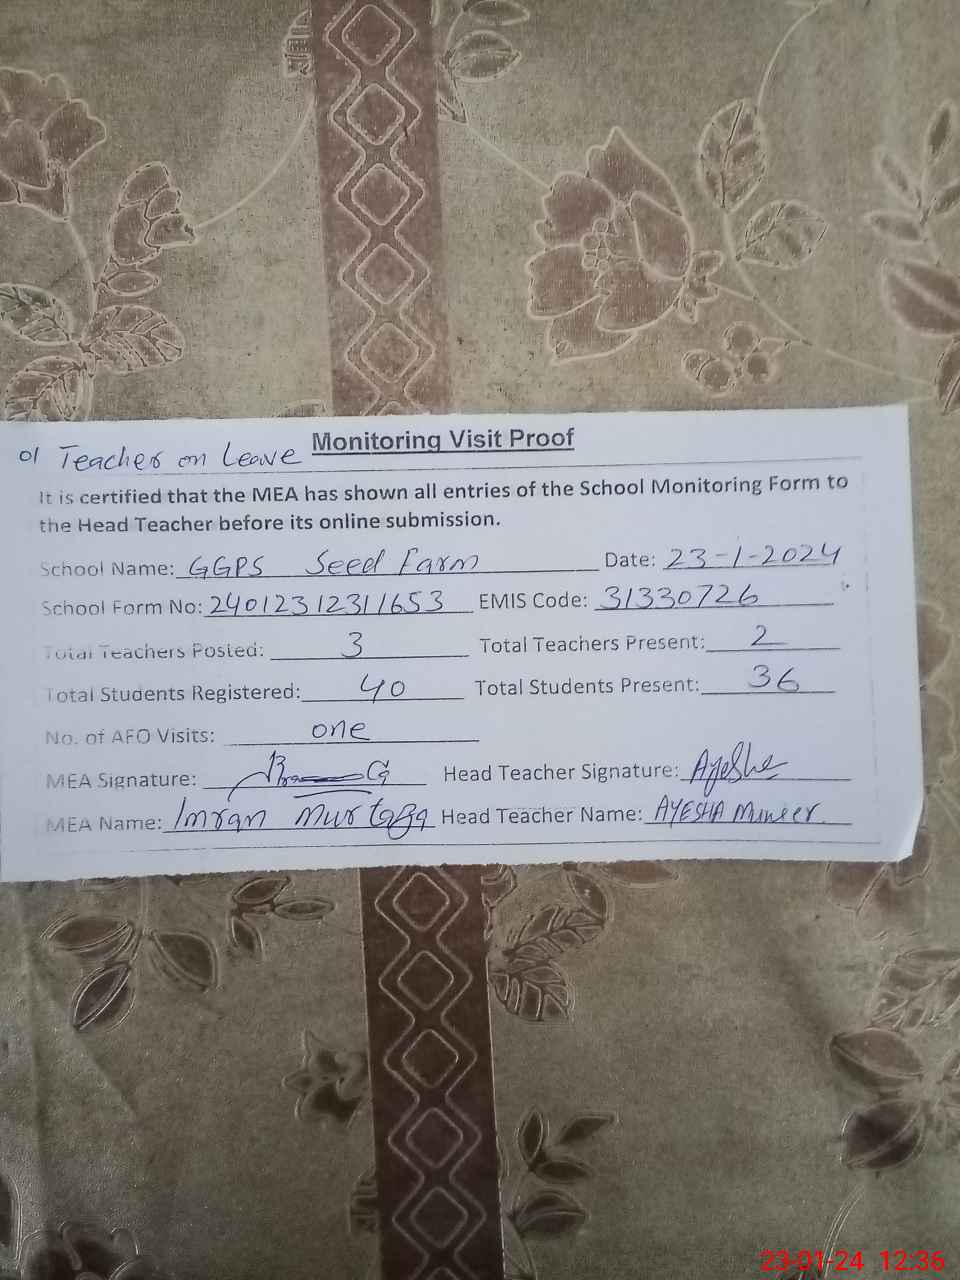 Monitoring Visit Proof
01 Teacher on Leave
It is certified that the MEA has shown all entries of the School Monitoring Form to
the Head Teacher before its online submission.
School Name: GGPS Seed Farm Date: 23-1-2024
School Form No: 24012312311653 EMIS Code: 31330726
Total Teachers Posted: 3 Total Teachers Present: 2
Total Students Registered: 40 Total Students Present: 36
No. of AFO Visits: one
MEA Signature: Head Teacher Signature: Ayesha
MEA Name: Imran Murtaza Head Teacher Name: AYESHA Muneer
23-01-24 12:36